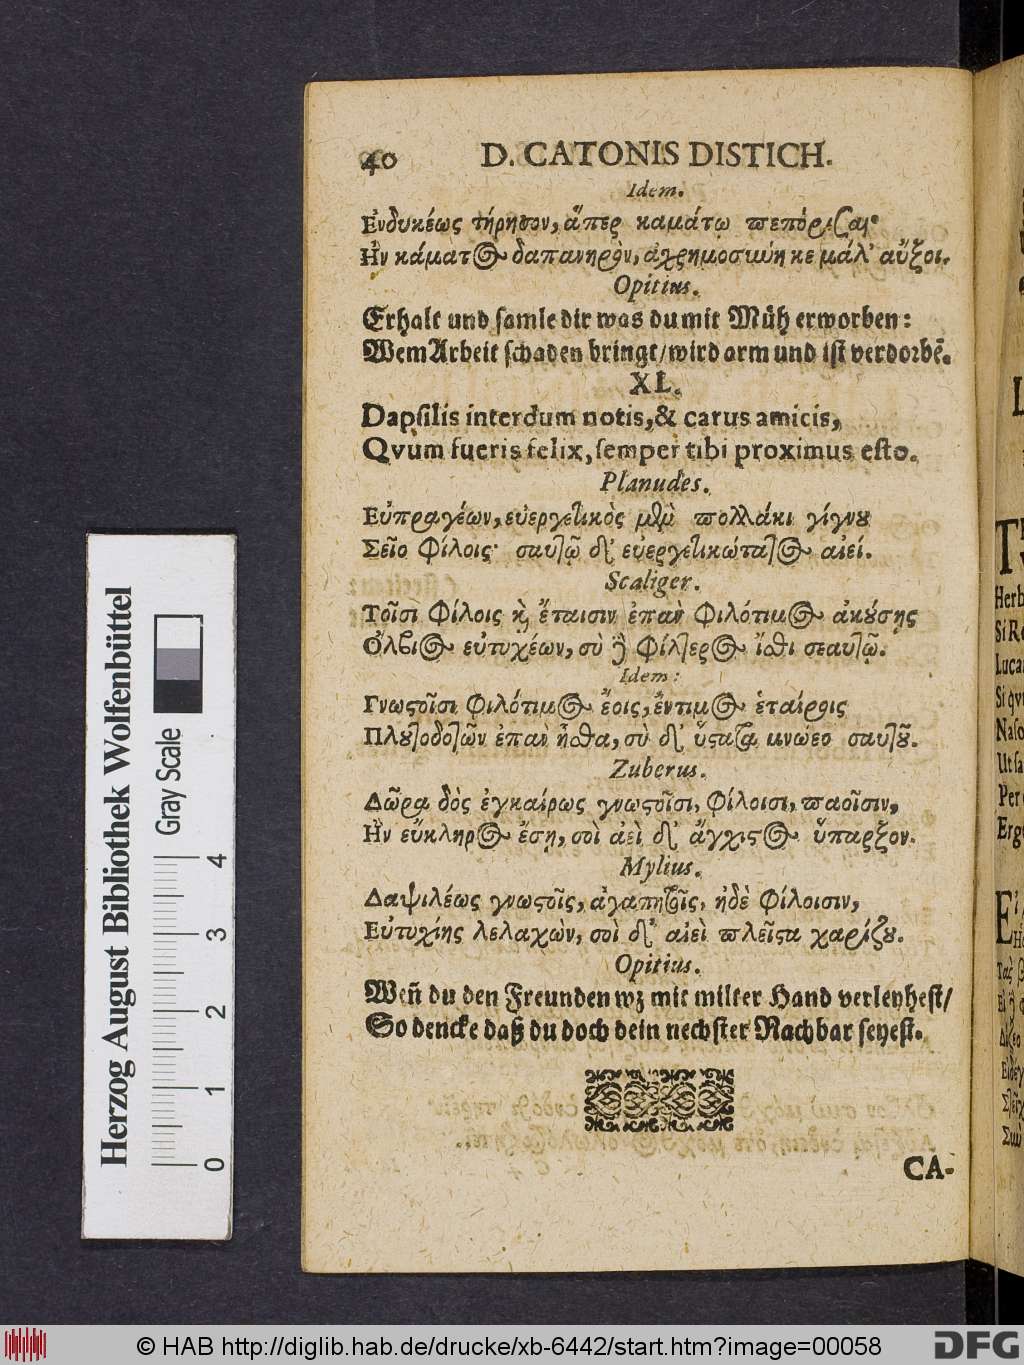 40 D. CATONIS DISTICH.
Idem.
Ἐνδυκέως τήρησον, ἅπερ καμάτῳ πεπόρισαι·
Ἢν κάματος δαπανηρὸν, ἀχρημοσύνη κε μάλ' αὔξοι.
Opitius.
Erhalt und samle dir was du mit Müh erworben:
Wem Arbeit schaden bringt/wird arm und ist verdorbẽ.
XL.
Dapsilis interdum notis, & carus amicis,
Qvùm fueris felix, semper tibi proximus esto.
Planudes.
Εὐπραγέων, εὐεργετικὸς μὲν πολλάκι γίγνου
Σεῖο φίλοις· σαυτῷ δ' εὐεργετικώτατος αἰεί.
Scaliger.
Τοῖσι φίλοις καὶ ἔταισιν ἐπὰν φιλότιμος ἀκούσῃς
Ὄλβιος εὐτυχέων, σὺ δὲ φίλτερος ἴσθι σεαυτῷ.
Idem:
Γνωστοῖσι φιλότιμος ἔοις, ἔντιμος ἑταίροις
Πλουτοδοτῶν ἐπὰν ἦσθα, σὺ δ' ὕστατα μνώεο σαυτοῦ.
Zuberus.
Δῶρα δὸς ἐγκαίρως γνωστοῖσι, φίλοισι, παοῖσιν,
Ἢν εὔκληρος ἔσῃ, σοὶ ἀεὶ δ' ἄγχιστος ὕπαρξον.
Mylius.
Δαψιλέως γνωστοῖς, ἀγαπητοῖς, ἠδὲ φίλοισιν,
Εὐτυχίης λελαχὼν, σοὶ δ' αἰεὶ πλεῖστα χαρίζου.
Opitius.
Weñ du den Freunden wz mit milter Hand verleyhest/
So dencke daß du doch dein nechster Nachbar seyest.
CA-
Herzog August Bibliothek Wolfenbüttel
Gray Scale
0 1 2 3 4
© HAB http://diglib.hab.de/drucke/xb-6442/start.htm?image=00058
DFG